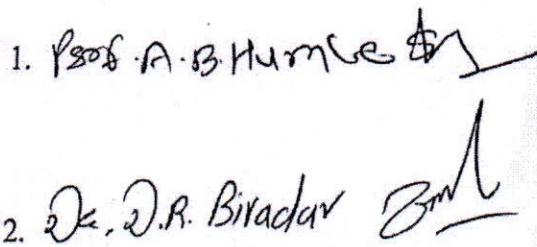 1. Prof. A. B. Humbe
2. Dr. D.R. Biradar